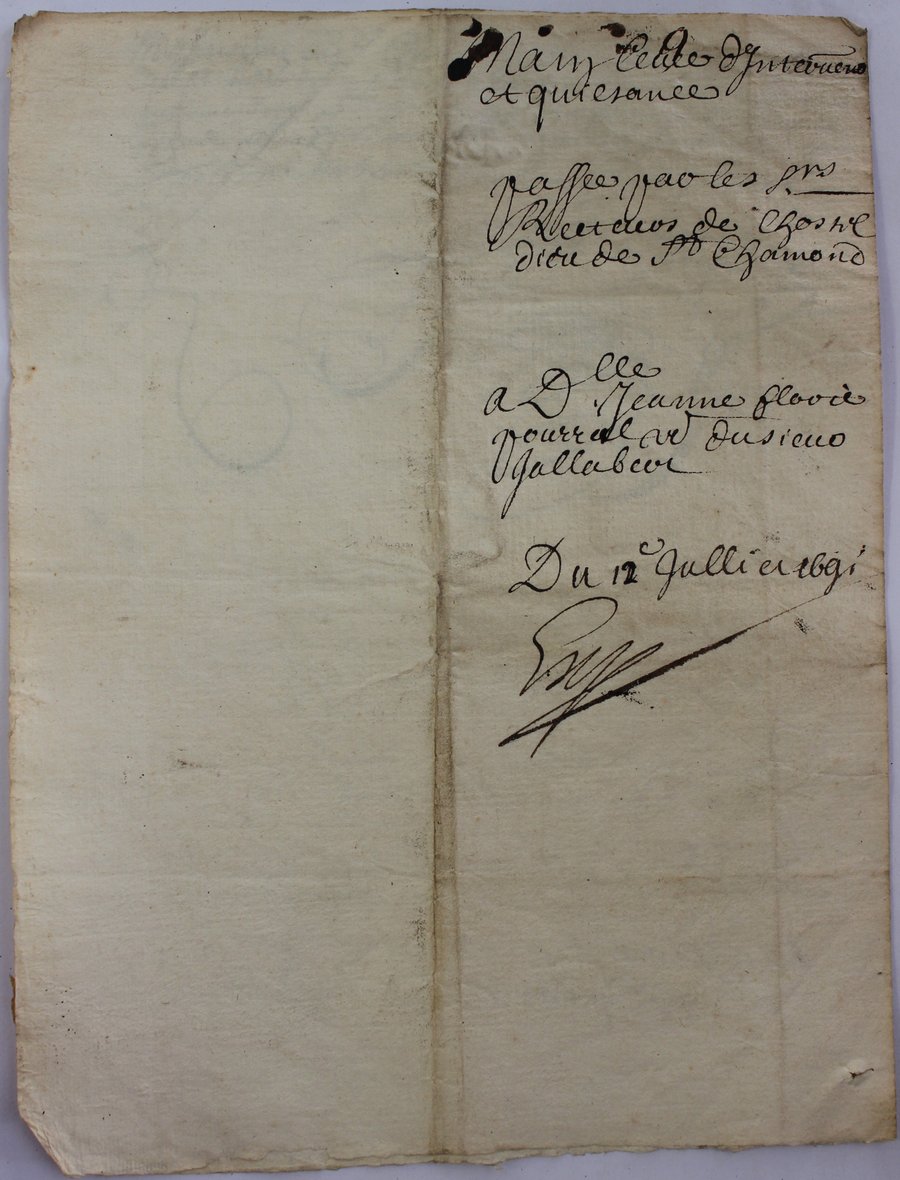 Main levee d'Intervens
et quictance
passée par les srs
Recteurs de lhostel
dieu de St Chamond
a Dlle Jeanne florie
pourrat vve du sieur
Jallabert
Du 12e Juilliet 1691